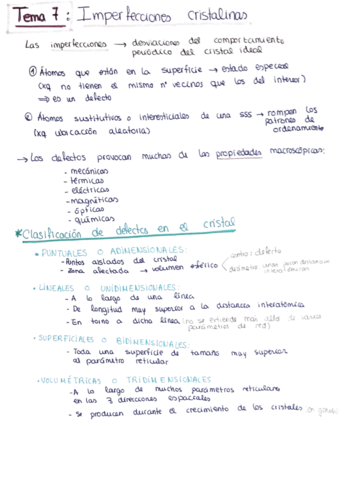 Tema 7: Imperfecciones cristalinas
Las imperfecciones → desviaciones del comportamiento
periódico del cristal ideal
① Átomos que están en la superficie → estado especial
(xq no tienen el mismo nº vecinos que los del interior)
⇒ es un defecto
② Átomos sustitutivos o intersticiales de una sss → rompen los
patrones de
ordenamiento
(xq ubicación aleatoria)
→ Los defectos provocan muchas de las propiedades macroscópicas:
- mecánicas
- térmicas
- eléctricas
- magnéticas
- ópticas
- químicas
*Clasificación de defectos en el cristal
• PUNTUALES O ADIMENSIONALES:
- Puntos aislados del cristal
- Zona afectada → volumen esférico
centro: defecto
diámetro
• LÍNEALES O UNIDIMENSIONALES:
- A lo largo de una línea
- De longitud muy superior a la distancia interatómica
- En torno a dicha línea (no se extiende más allá de
parámetros de red)
• SUPERFICIALES O BIDIMENSIONALES:
- Toda una superficie de tamaño muy superior
al parámetro reticular
• VOLUMÉTRICAS O TRIDIMENSIONALES
- A lo largo de muchos parámetros reticulares
en las 3 direcciones espaciales
- Se producen durante el crecimiento de los cristales